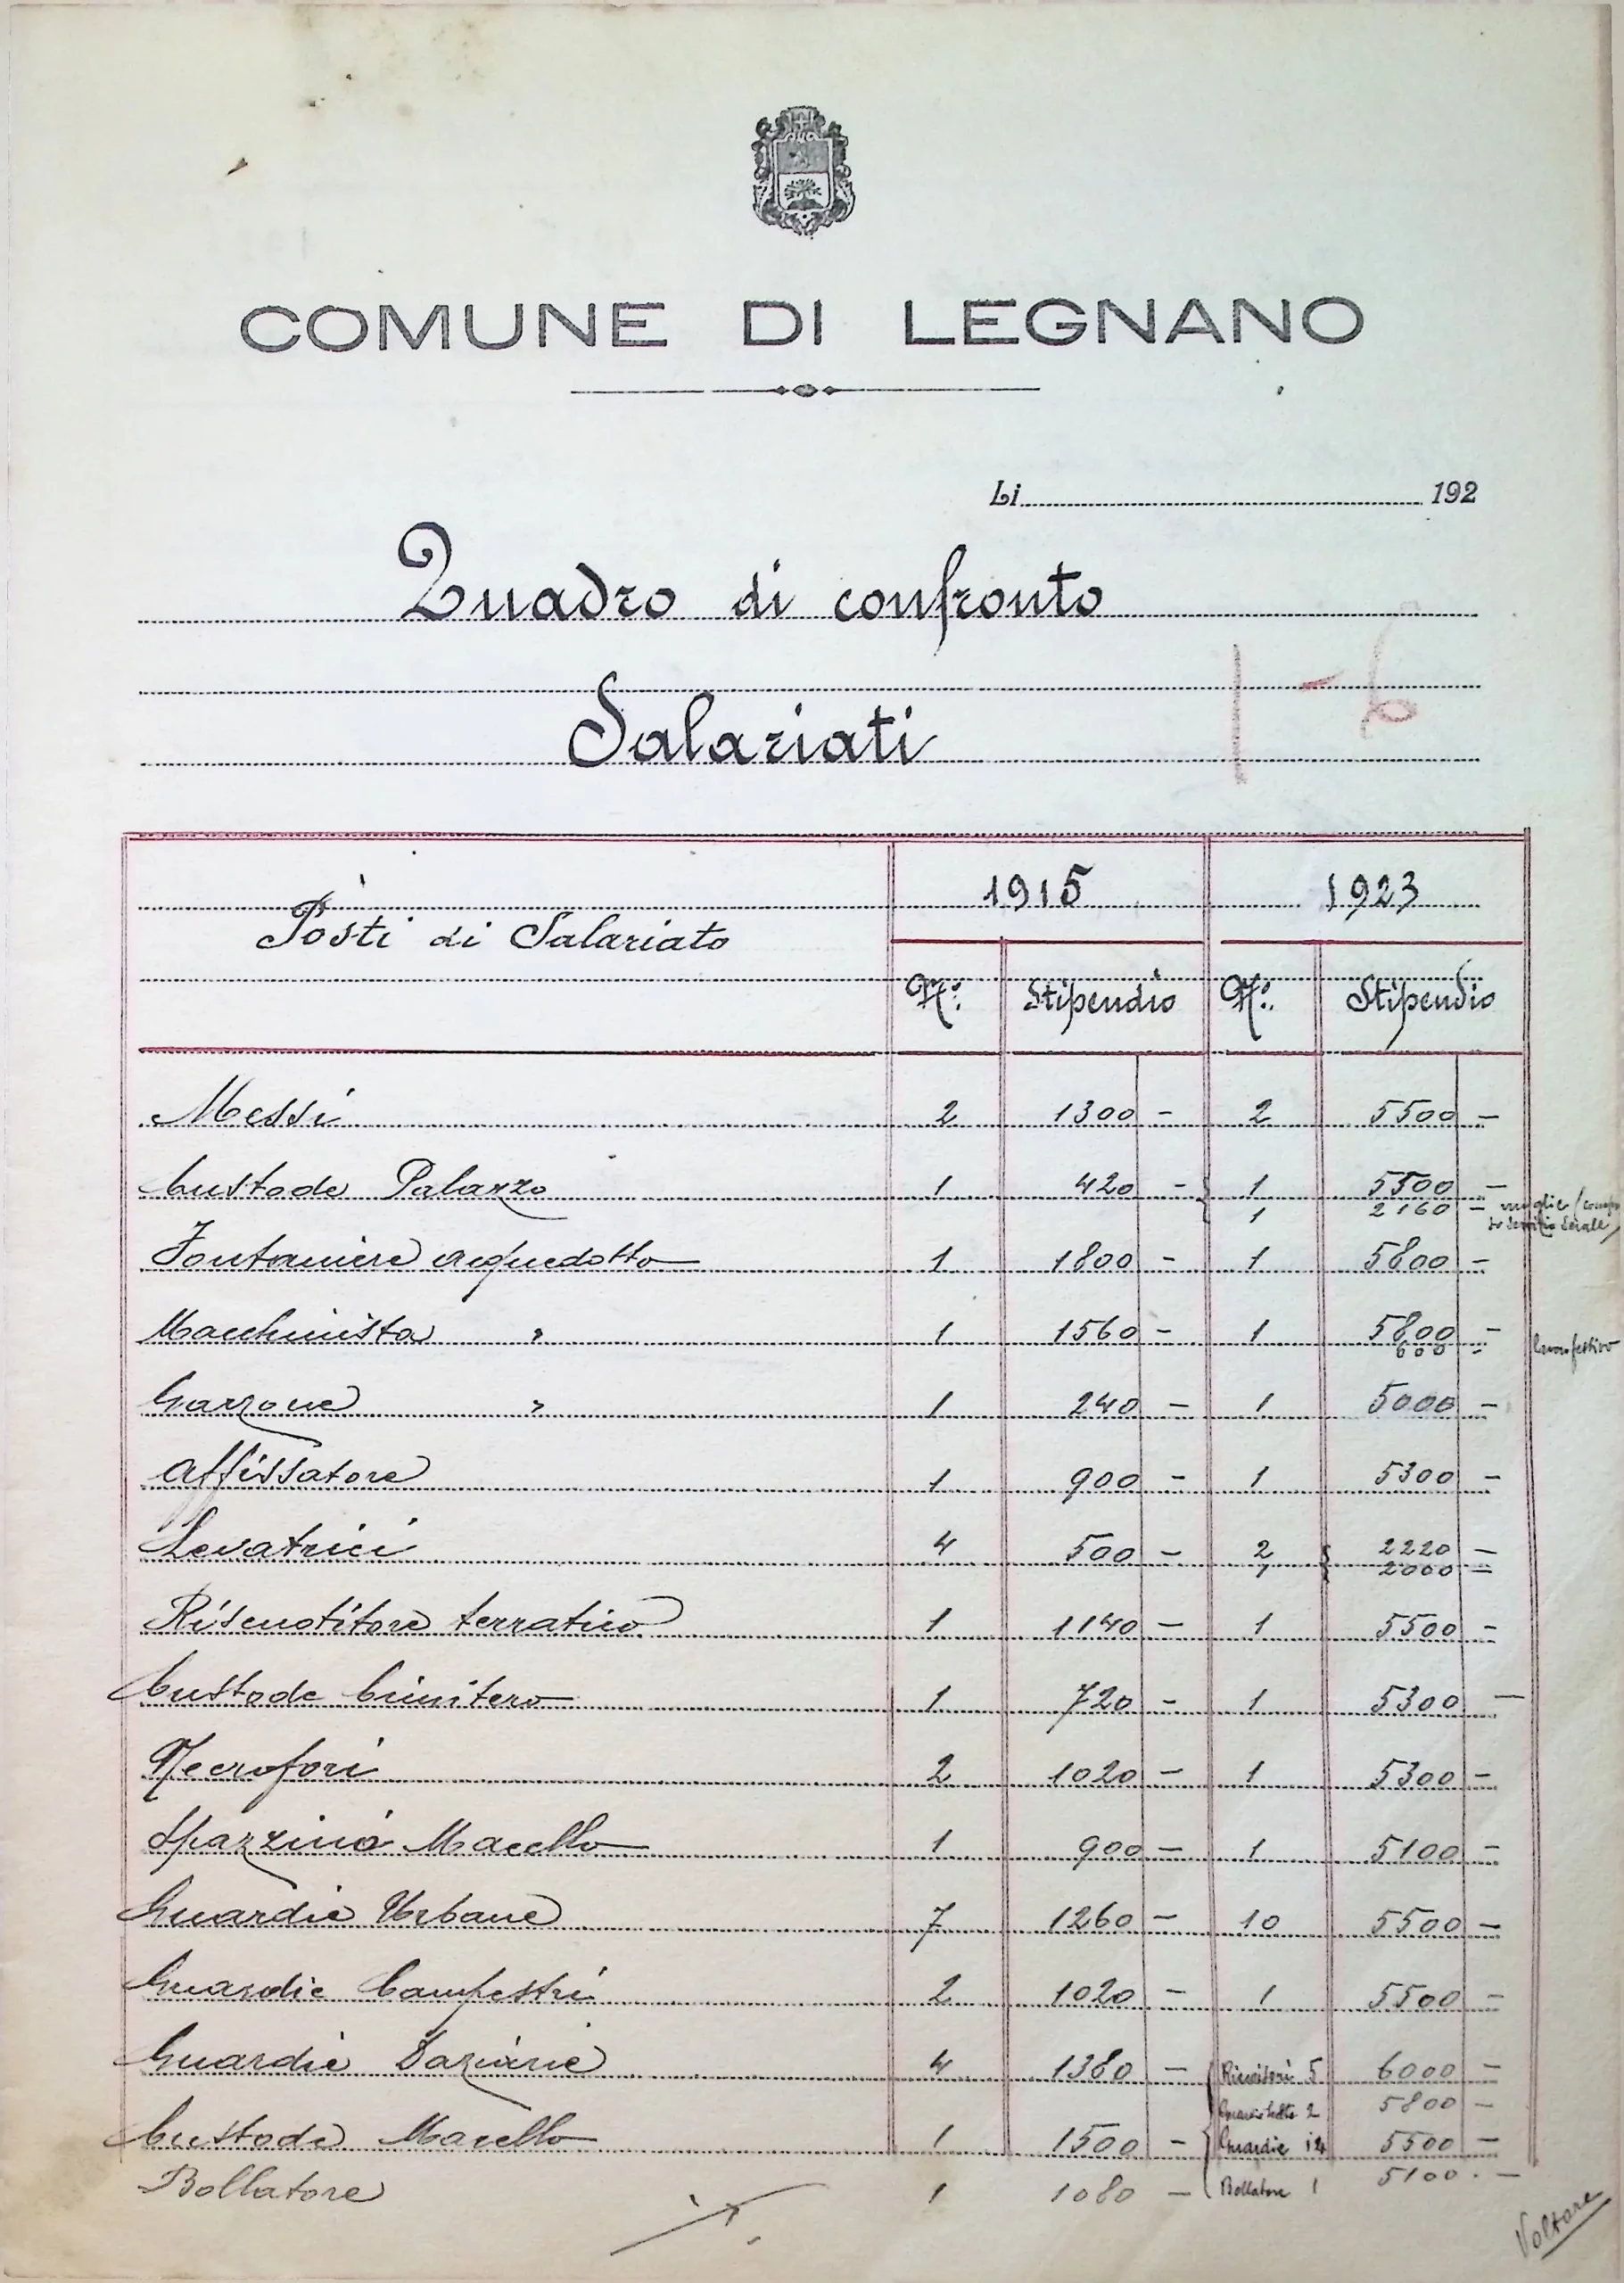 COMUNE DI LEGNANO
Li 192
Quadro di confronto
1-6
Salariati
1915 1923
Posti di Salariato
N.º Stipendio N.º Stipendio
Messi 2 1300 - 2 5500 -
Custode Palazzo 1 420 - 1 5500 -
1 2160 - moglie (compre
so servizio serale)
Fontaniere acquedotto 1 1800 - 1 5800 -
Macchinista " 1 1560 - 1 5800 -
600 -
Garzone " 1 240 - 1 5000 -
Affissatore 1 900 - 1 5300 -
Levatrici 4 500 - 2 2220 -
2000 -
Riscuotitore terratico 1 1140 - 1 5500 -
Custode Cimitero 1 720 - 1 5300 -
Necrofori 2 1020 - 1 5300 -
Spazzino Macello 1 900 - 1 5100 -
Guardie Urbane 7 1260 - 10 5500 -
Guardie Campestri 2 1020 - 1 5500 -
Guardie Daziarie 4 1380 - Ricevitori 5 6000 -
2 5800 -
Custode Macello 1 1500 - Guardie 14 5500 -
Bollatore 1 1080 - Bollatore 1 5100 . -
Voltare